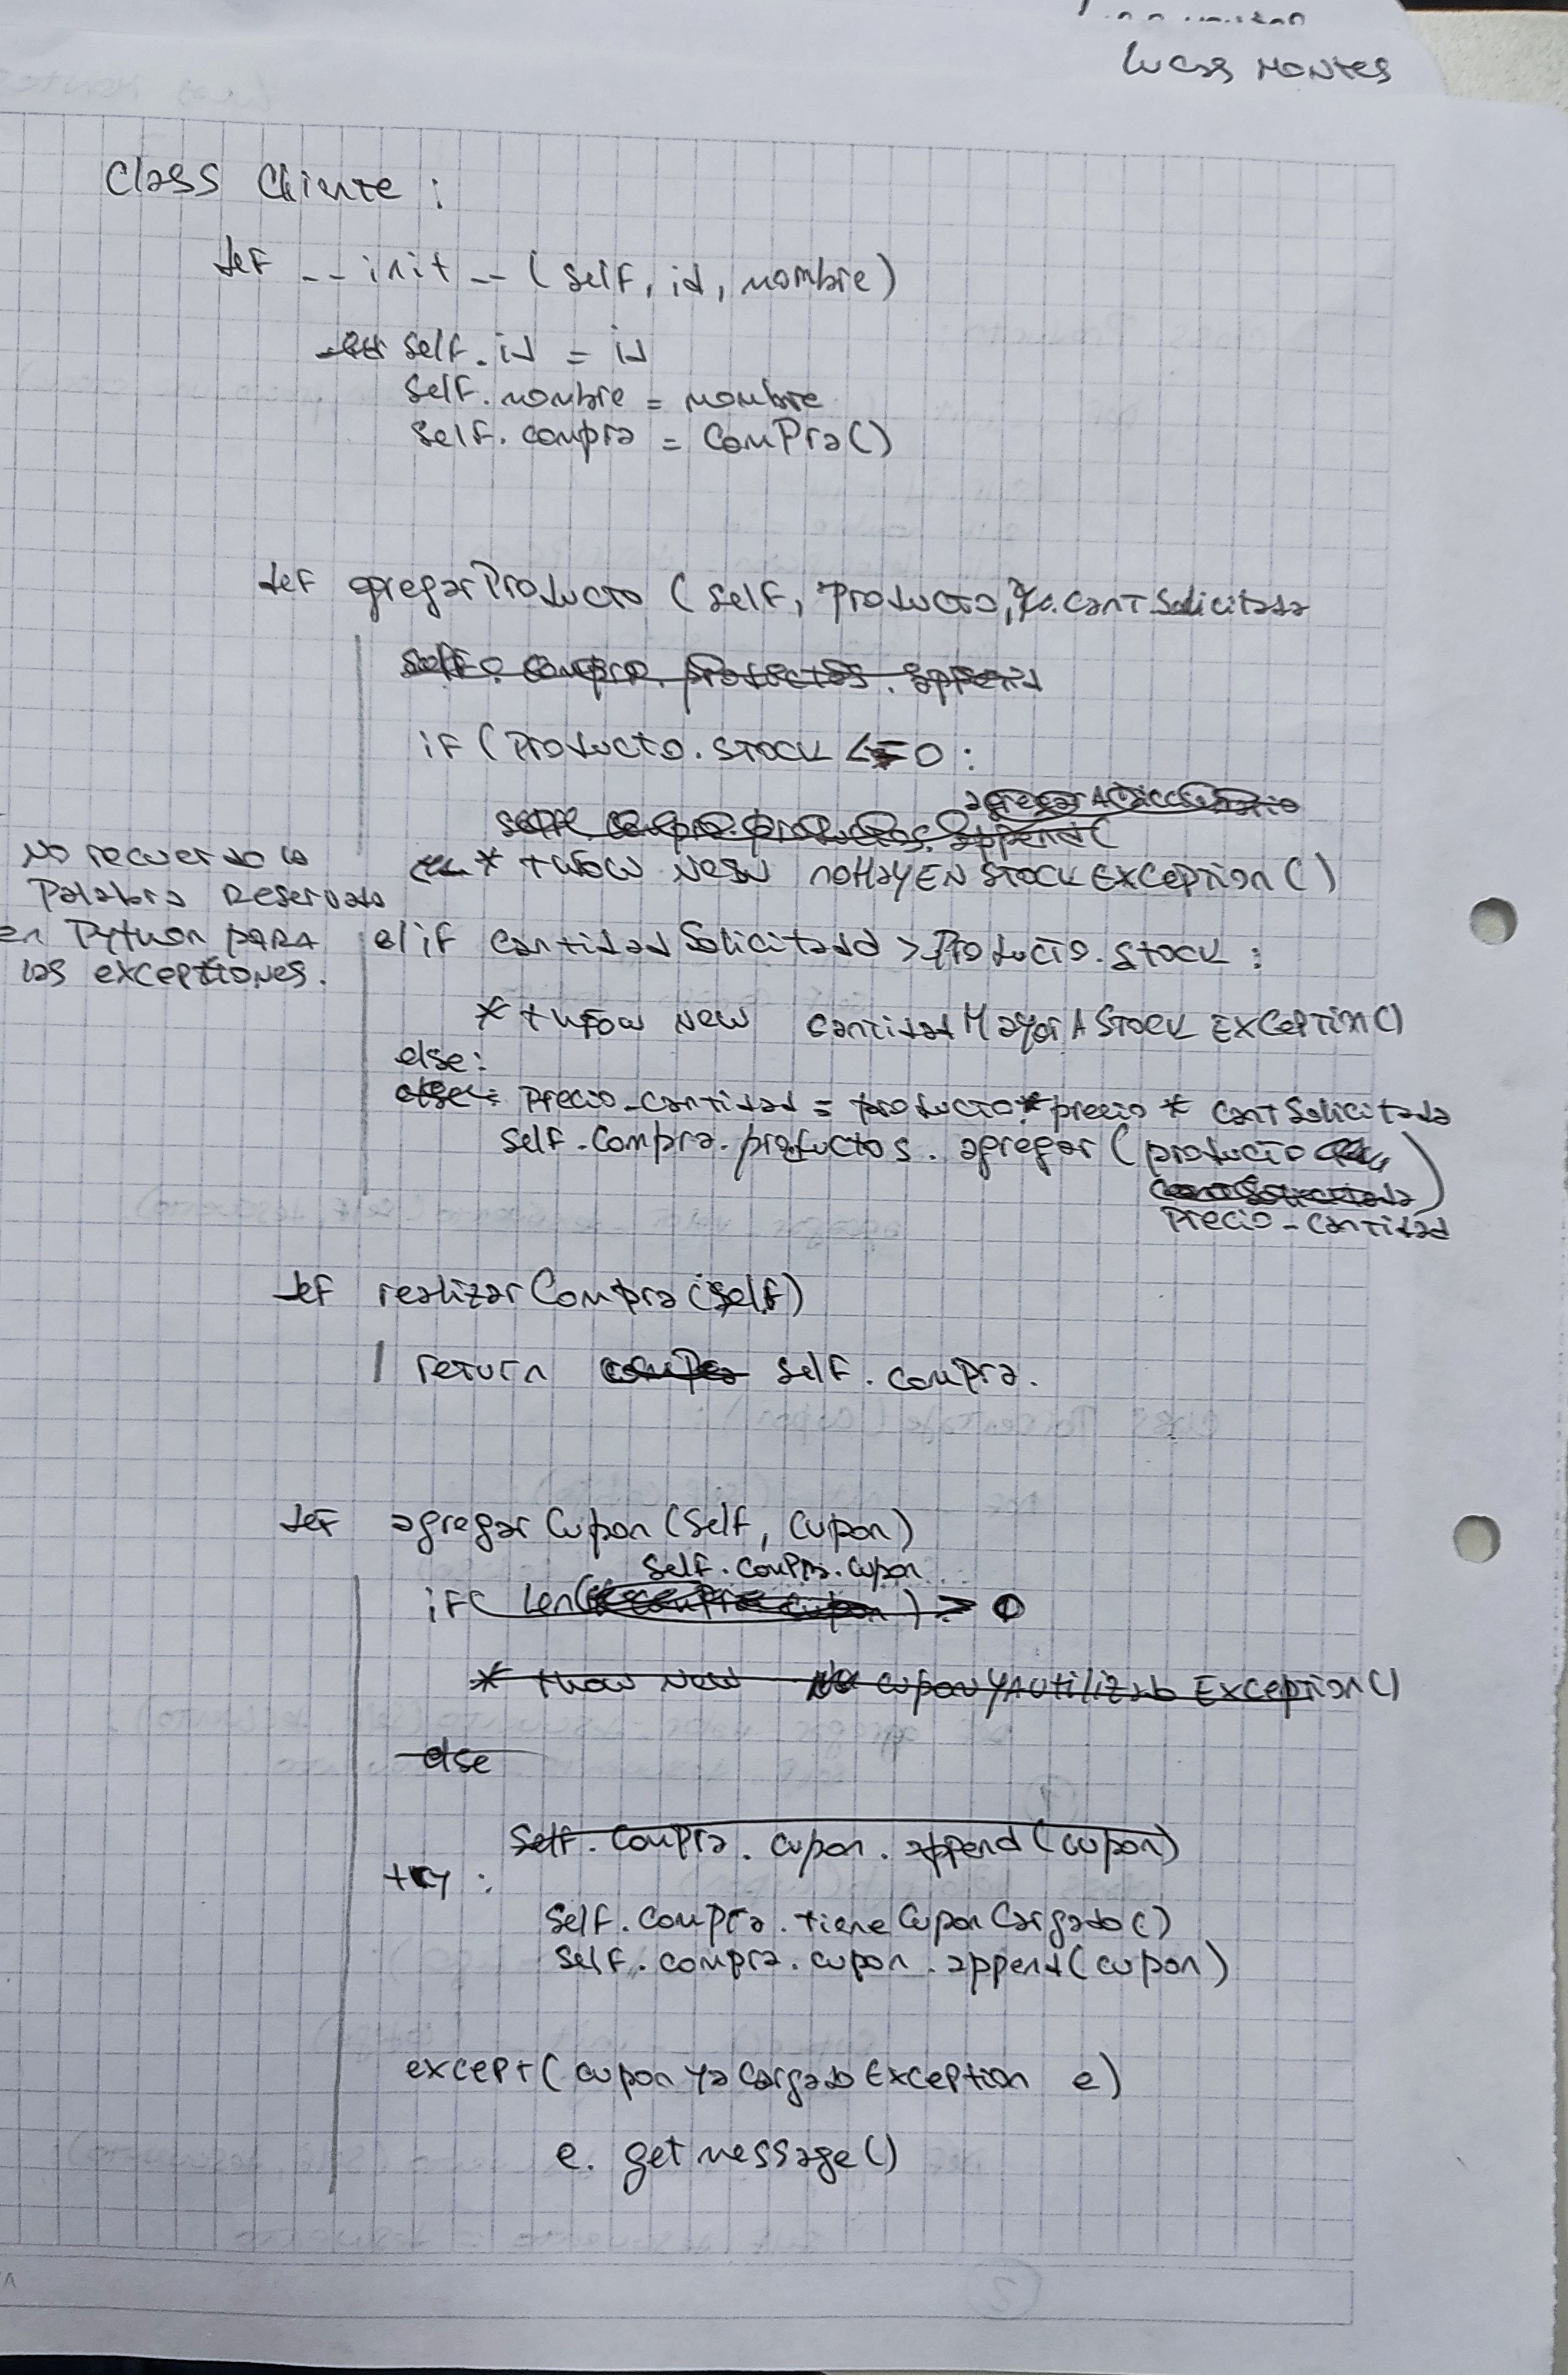 Lucas Montes
Class Cliente :
def __init__(self, id, nombre)
self.id = id
self.nombre = nombre
self.compra = ComPra()
def agregarProducto (self, Producto, cantSolicitada
self. compra. productos. append
if (Producto.STOCK <= 0 :
agregarADiccionario
self. compra. productos. append(
* throw new noHayEnStockException()
No recuerdo la
Palabra Reservada
en Python para
las exceptiones.
elif cantidadSolicitada > Producto.stock :
* throw new cantidadMayorAStockException()
else:
else: Precio_cantidad = producto*precio * cantSolicitada
self.compra.productos. agregar (producto
cantSolicitada)
Precio_cantidad
def realizarCompra(self)
return compra self.compra.
def agregarCupon(self, cupon)
self.compra.cupon
if( Len( compra cupon ) > 0
* throw new cuponYAutilizado Exception()
else
self.compra.cupon.append(cupon)
try :
self.compra.tieneCuponCargado()
self.compra.cupon.append(cupon)
except(cuponYaCargadoException e)
e. getmessage()